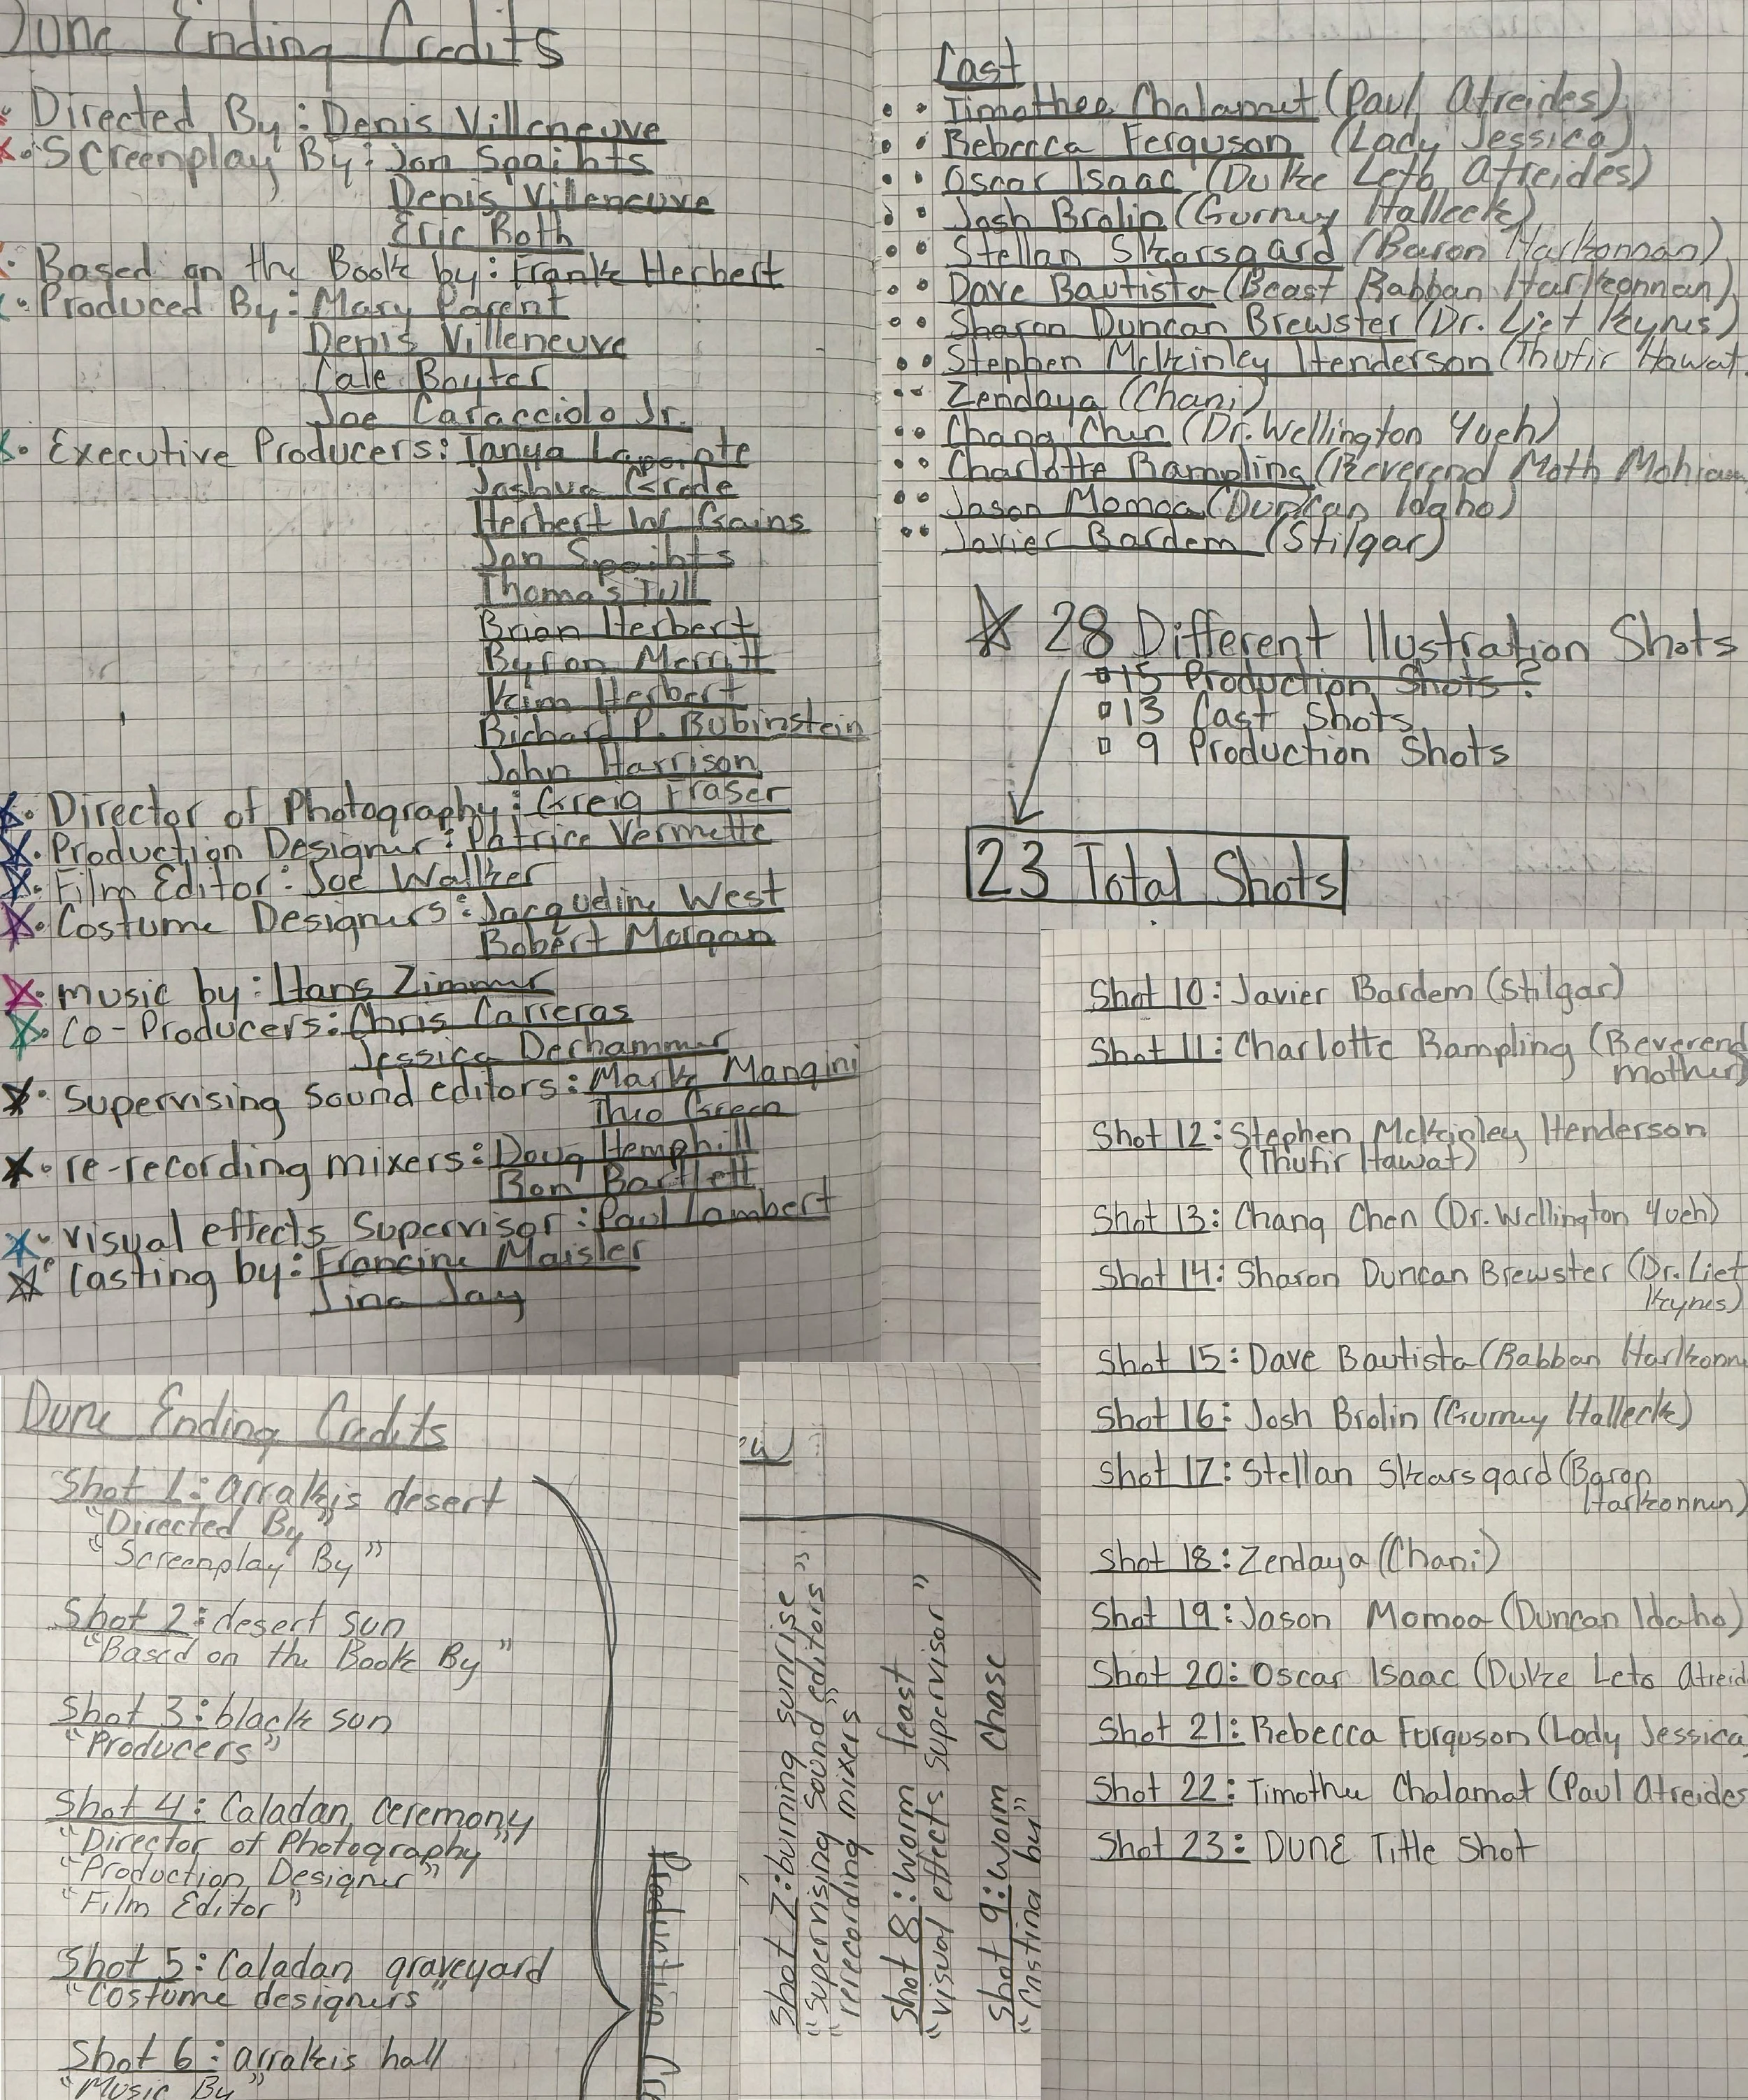 Dune Ending Credits
Directed By: Denis Villeneuve
Screenplay By: Jon Spaihts
Denis Villeneuve
Eric Roth
Based on the Book by: Frank Herbert
Produced By: Mary Parent
Denis Villeneuve
Cale Boyter
Joe Caracciolo Jr.
Executive Producers: Tanya Lapointe
Joshua Grode
Herbert W. Gains
Jon Spaihts
Thomas Tull
Brian Herbert
Byron Merritt
Kim Herbert
Richard P. Rubinstein
John Harrison
Director of Photography: Greig Fraser
Production Designer: Patrice Vermette
Film Editor: Joe Walker
Costume Designers: Jacqueline West
Robert Morgan
music by: Hans Zimmer
Co-Producers: Chris Carreras
Jessica Derhammer
Supervising sound editors: Mark Mangini
Theo Green
re-recording mixers: Doug Hemphill
Ron Bartlett
visual effects Supervisor: Paul Lambert
Casting by: Francine Maisler
Jina Jay
Cast
Timothee Chalamet (Paul Atreides)
Rebecca Ferguson (Lady Jessica)
Oscar Isaac (Duke Leto Atreides)
Josh Brolin (Gurney Halleck)
Stellan Skarsgard (Baron Harkonnan)
Dave Bautista (Beast Rabban Harkonnan)
Sharon Duncan Brewster (Dr. Liet Kynes)
Stephen Mckinley Henderson (Thufir Hawat
Zendaya (Chani)
Chang Chen (Dr. Wellington Yueh)
Charlotte Rampling (Reverend Moth Mohiam
Jason Momoa (Duncan Idaho)
Javier Bardem (Stilgar)
28 Different Illustration Shots
15 Production Shots?
13 Cast Shots
9 Production Shots
23 Total Shots
Dune Ending Credits
Shot 1: arrakis desert
"Directed By"
"Screenplay By"
Shot 2: desert sun
"Based on the Book By"
Shot 3: black sun
"Producers"
Shot 4: Caladan ceremony
"Director of Photography"
"Production Designer"
"Film Editor"
Shot 5: Caladan graveyard
"Costume designers"
Shot 6: arrakis hall
"Music By"
Production
Shot 7: burning sunrise
"Supervising sound editors"
"rerecording mixers"
Shot 8: worm feast
"visual effects supervisor"
Shot 9: worm chase
"Casting by"
Shot 10: Javier Bardem (Stilgar)
Shot 11: Charlotte Rampling (Reverend
mother)
Shot 12: Stephen Mckinley Henderson
(Thufir Hawat)
Shot 13: Chang Chen (Dr. Wellington Yueh)
Shot 14: Sharon Duncan Brewster (Dr. Liet
Kynes)
Shot 15: Dave Bautista (Rabban Harkonn
Shot 16: Josh Brolin (Gurney Halleck)
Shot 17: Stellan Skarsgard (Baron
Harkonnen)
Shot 18: Zendaya (Chani)
Shot 19: Jason Momoa (Duncan Idaho)
Shot 20: Oscar Isaac (Duke Leto Atreid
Shot 21: Rebecca Ferguson (Lady Jessica
Shot 22: Timothee Chalamat (Paul Atreides
Shot 23: DUNE Title Shot